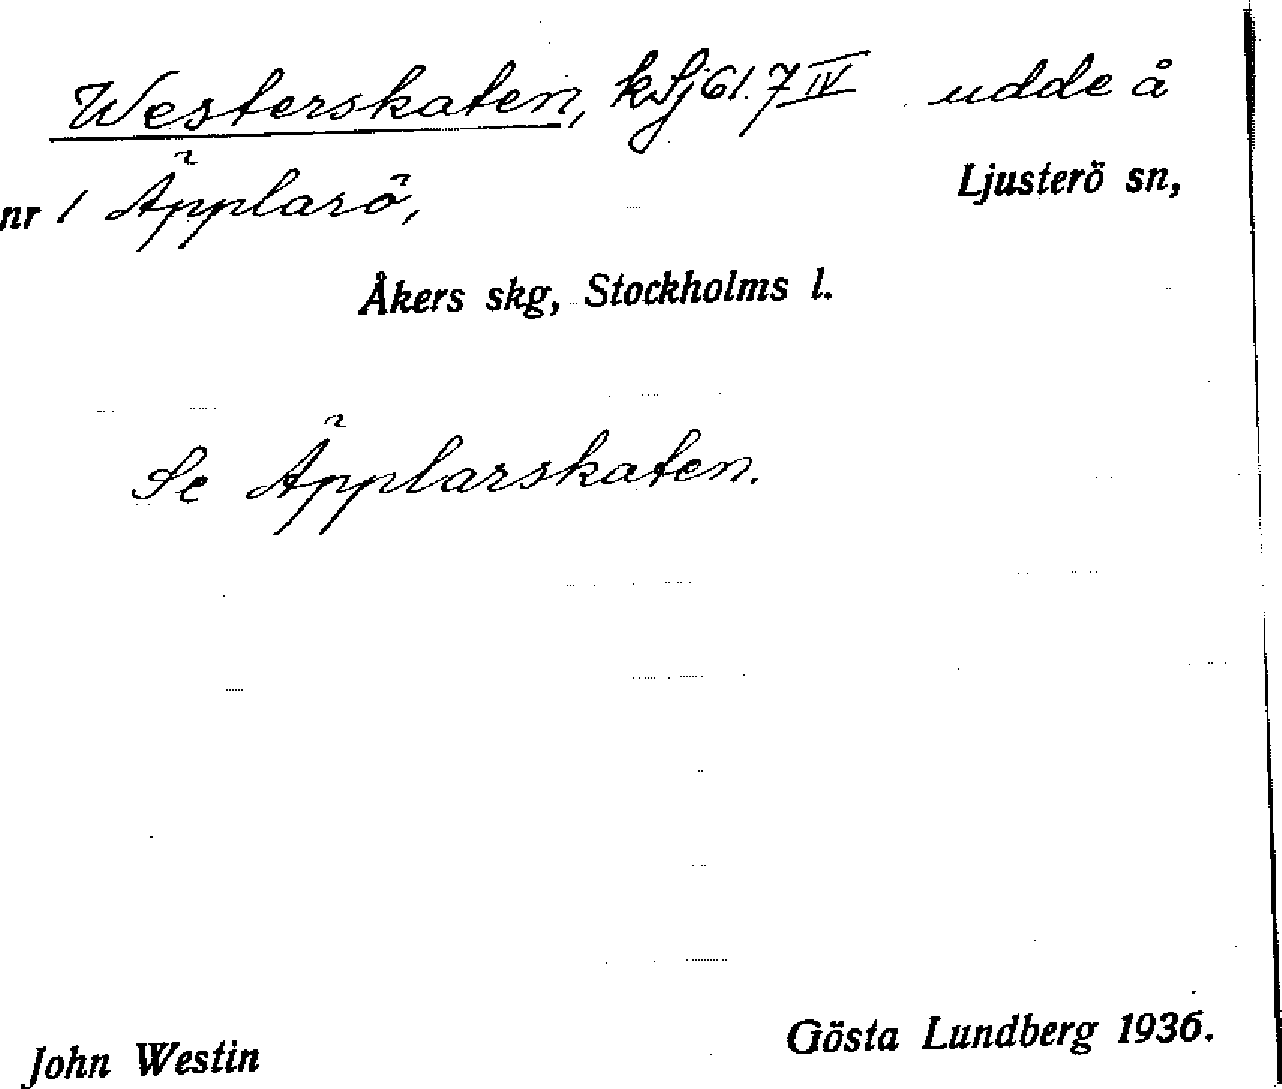 Westerskaten, kSj 61.7 IV udde å
nr 1 Äpplarö, Ljusterö sn,
Åkers skg, Stockholms l.
Se Äpplarskaten.
John Westin Gösta Lundberg 1936.